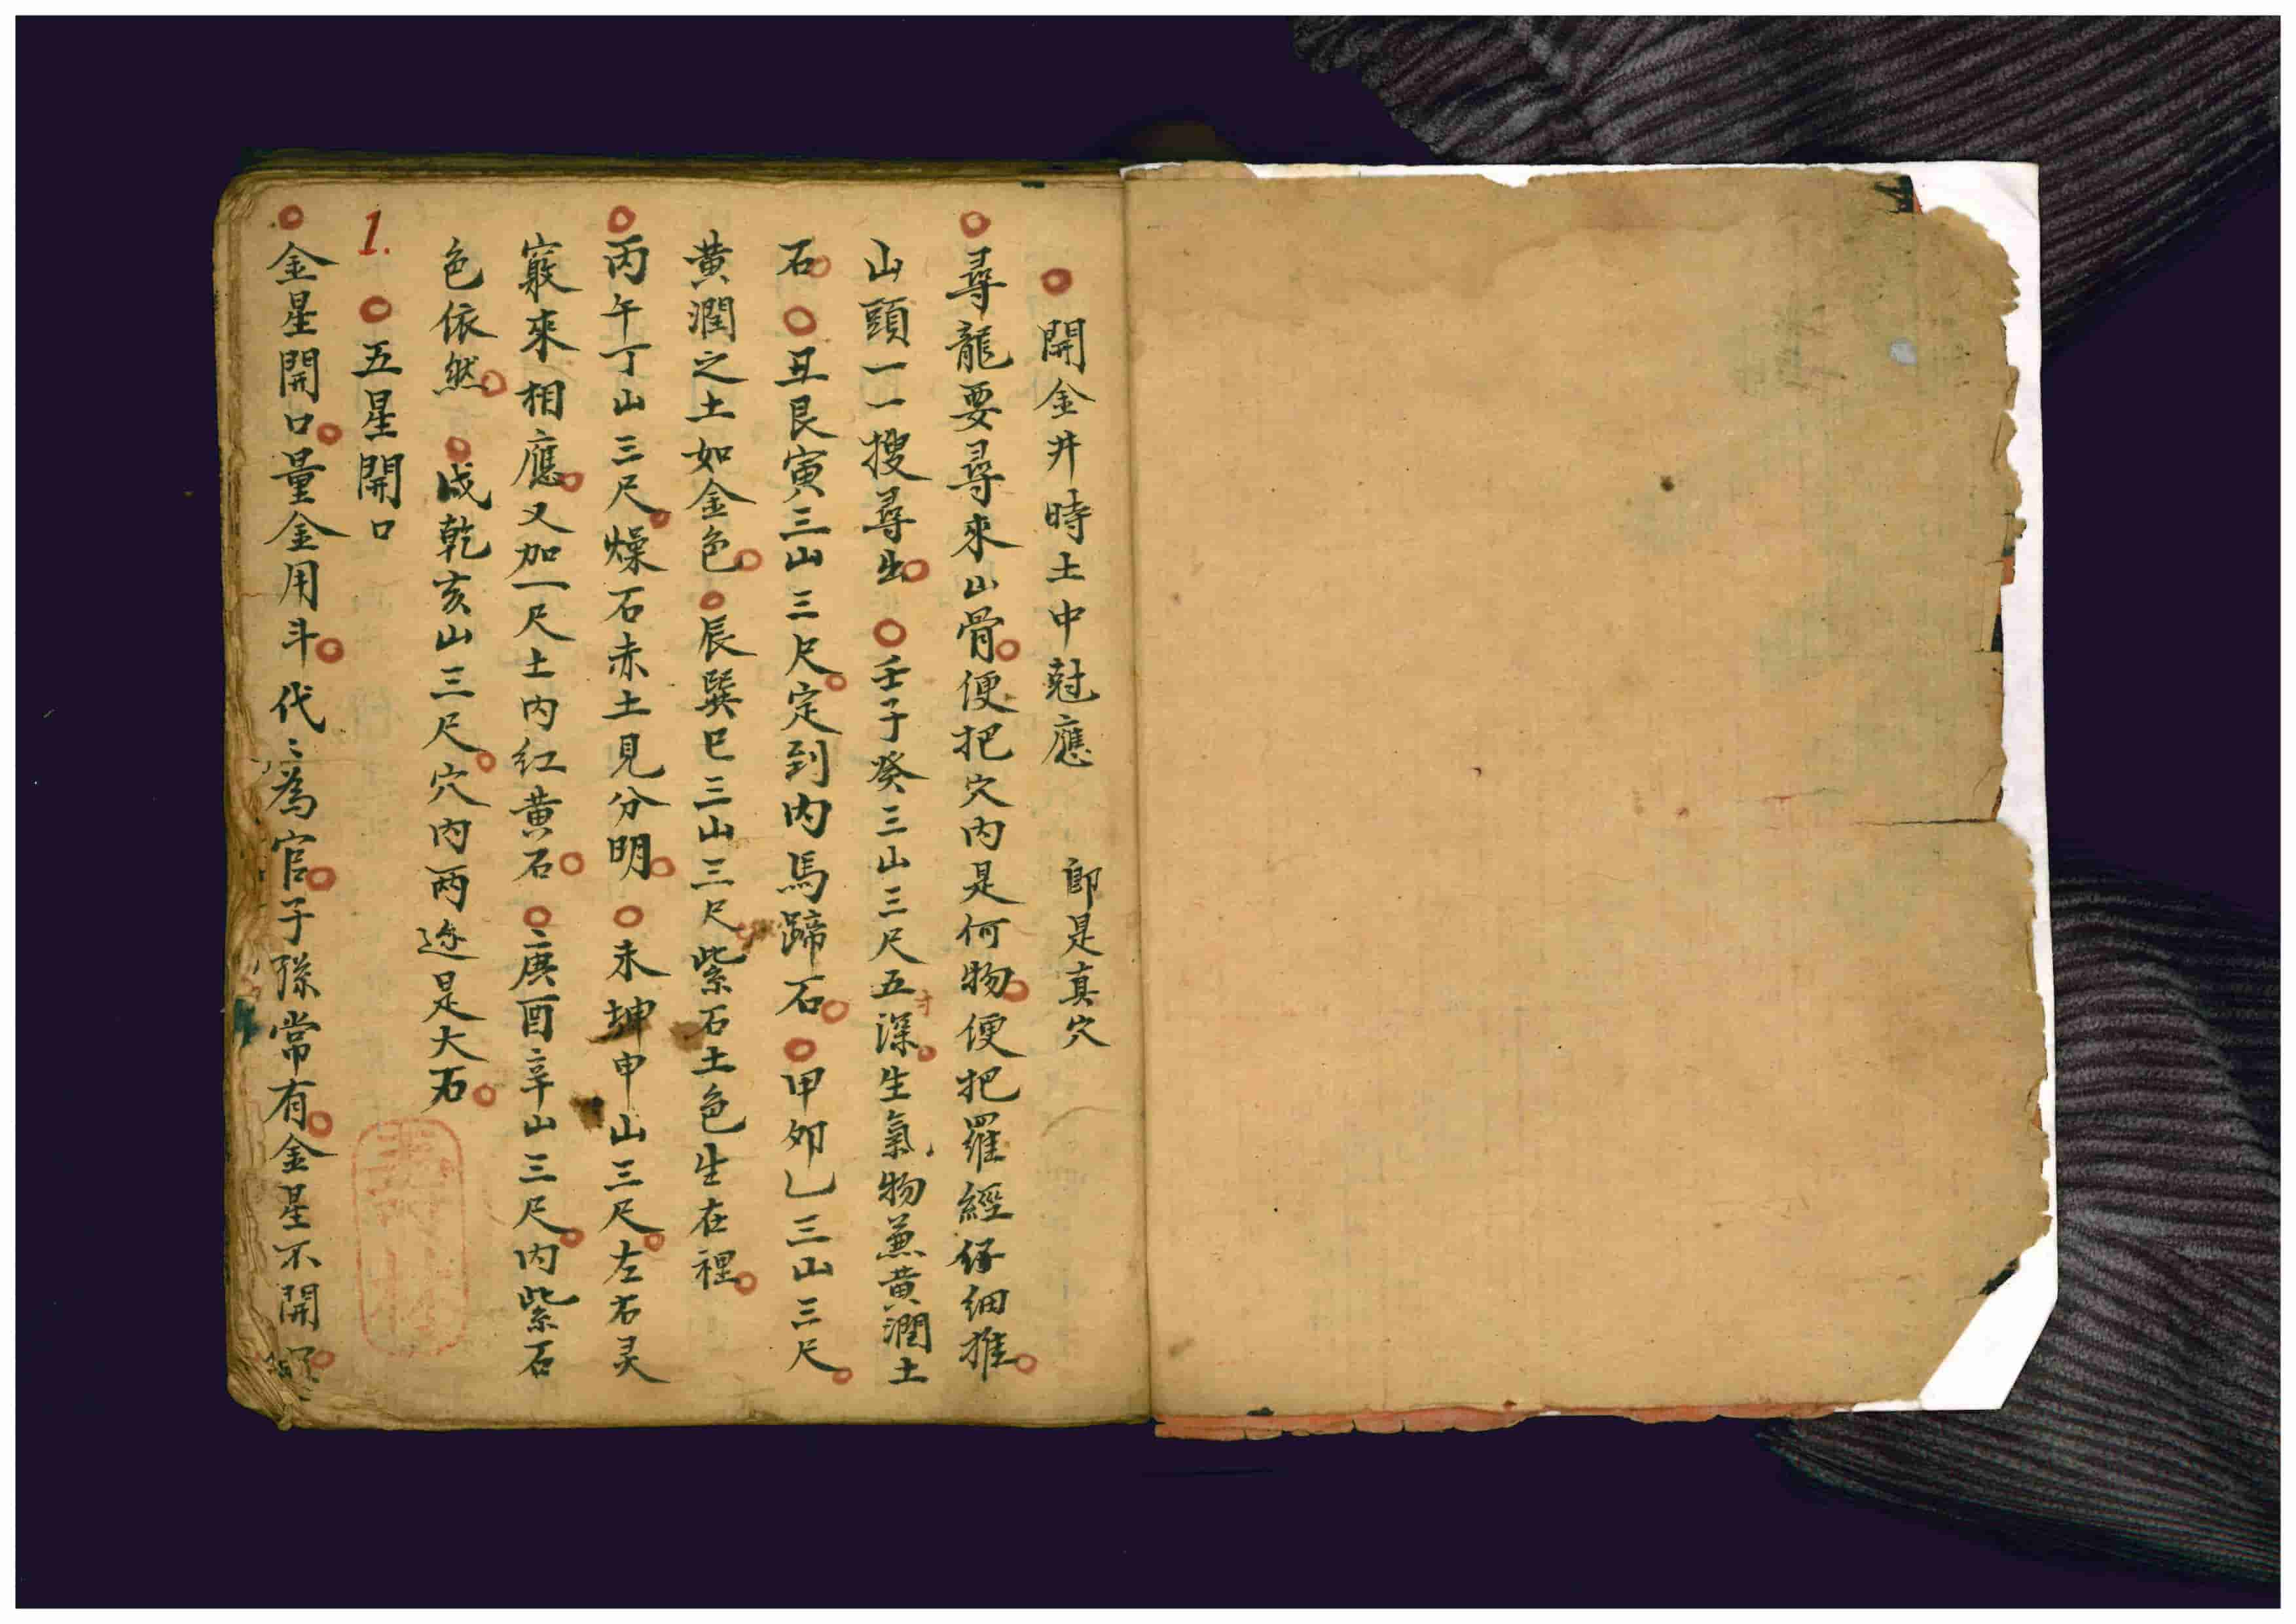 開金井時土中尅應 即是真穴
尋龍要尋來山骨便把穴內是何物便把羅經仔細推
山頭一一搜尋出壬子癸三山三尺五寸深生氣物兼黃潤土
石丑艮寅三山三尺定到內馬蹄石甲夘乙三山三尺
黃潤之土如金色辰巽巳三山三尺紫石土色生在裡
丙午丁山三尺燥石赤土見分明未坤申山三尺左右灵
竅來相應又加一尺土內紅黃石庚酉辛山三尺內紫石
色依然戍乾亥山三尺穴內兩邊是大石
1. 五星開口
金星開口量金用斗代〻為官子孫常有金星不開